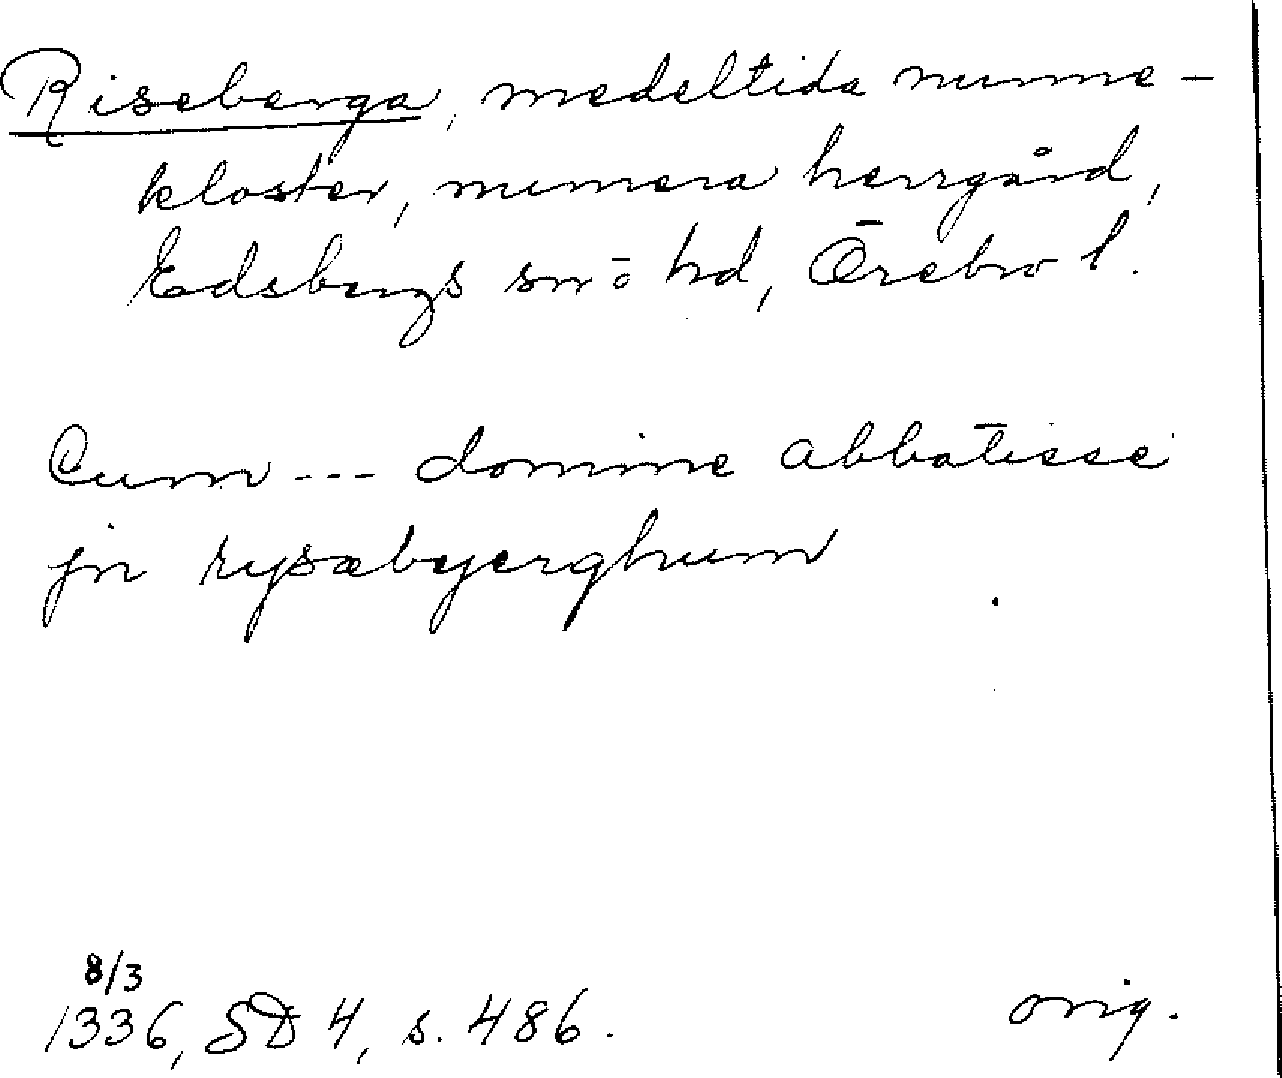 Riseberga, medeltida nunne-
kloster, numera herrgård,
Edsbergs sn o hd, Örebro l.
Cum --- domine abbatisse
jn rysæbyerghum
8/3
1336, SD 4, s. 486.
orig.